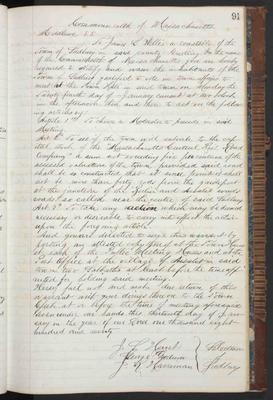 91
Commonwealth of Massachusetts
Middlesex S.S.
To James L. Willis a constable of the
Town of Sudbury in said county Greeting. In the name
of the Commonwealth of Massachusetts you are hereby
required to notify and warn the inhabitants of the
Town of Sudbury qualified to vote in town affairs to
meet at the Town Hall in said town on Monday the
Twenty first day of January current at one o'clock
in the afternoon then and there to act on the follow
ing articles viz.
Article 1st To choose a Moderator to preside in said
Meeting
Art. 2d To see if the town will subscribe to the cap
ital stock of the "Massachusetts Central Rail Road
Company" a sum not exceeding five per centum of the
assessed valuation of the town, provided said road
shall be so constructed that it
not be more than forty rods from the
at the junction of the
roads so called near the center of said Sudbury
Art. 3d To take any action which may be deemed
necessary or desirable to carry into effect the action
upon the foregoing article
And you are directed to serve this warrant by
posting an attested copy thereof at the Town House
at each of the Public Meeting Houses and at the
Post Office at the village of Assabet in said
town two Sabbaths at least before the time app
ointed for holding said meeting.
Hereof fail not and make due return of this
warrant with your doings thereon to the Town
Clerk at or before the time of meeting aforesaid
Given under our hands this thirteenth day of Janu
ary in the year of our Lord one thousand eight
hundred and seventy
J. P.
George Goodnow
J. Haynes
Selectmen
of
Sudbury